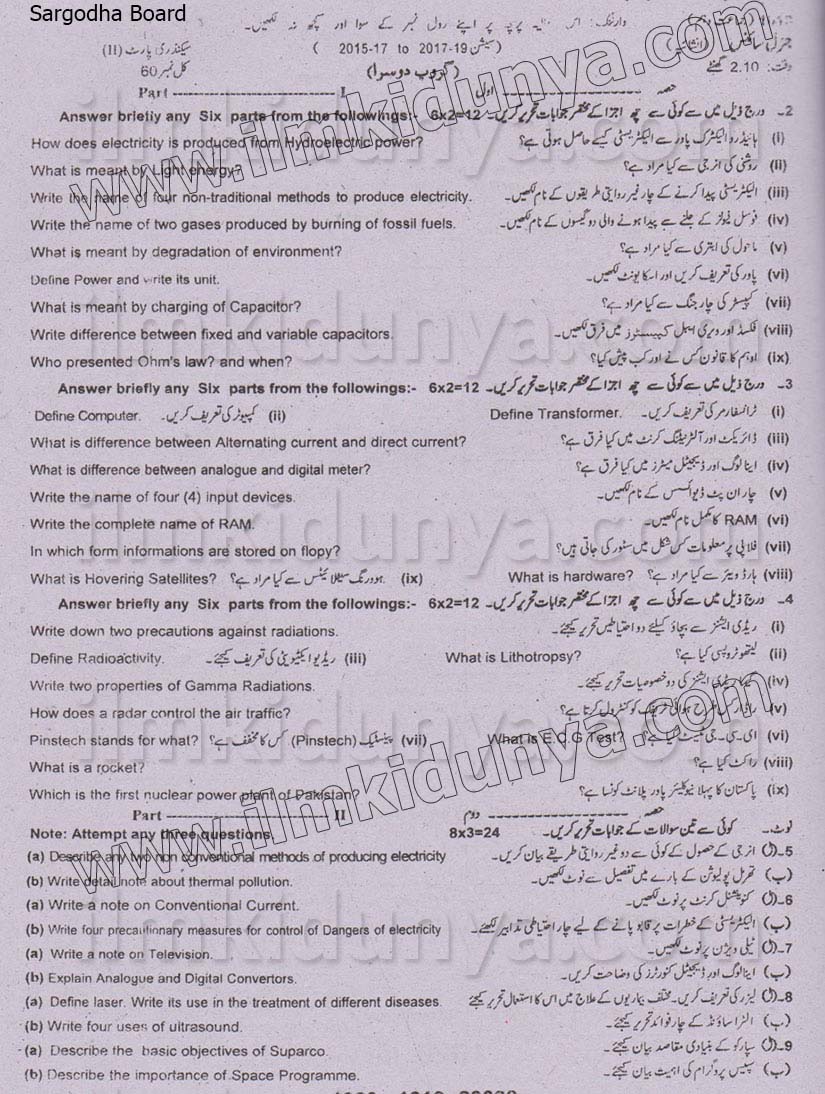 Sargodha Board
وارننگ: اس پرچہ پر اپنے رول نمبر کے سوا اور کچھ نہ لکھیں۔
جنرل سائنس (انشائیہ) (سیشن 2015-17 to 2017-19) سیکنڈری پارٹ (II)
وقت: 2.10 گھنٹے (گروپ دوسرا) کل نمبر 60
Part ---------------- I حصہ ---------------- اول
Answer briefly any Six parts from the followings:- 6x2=12 2۔ درج ذیل میں سے کوئی سے چھ اجزا کے مختصر جوابات تحریر کریں۔
How does electricity is produced from Hydroelectric power? (i) ہائیڈرو الیکٹرک پاور سے الیکٹریسٹی کیسے حاصل ہوتی ہے؟
What is meant by Light energy? (ii) روشنی کی انرجی سے کیا مراد ہے؟
Write the name of four non-traditional methods to produce electricity. (iii) الیکٹریسٹی پیدا کرنے کے چار غیر روایتی طریقوں کے نام لکھیں۔
Write the name of two gases produced by burning of fossil fuels. (iv) فوسل فیولز کے جلنے سے پیدا ہونے والی دو گیسوں کے نام لکھیں۔
What is meant by degradation of environment? (v) ماحول کی ابتری سے کیا مراد ہے؟
Define Power and write its unit. (vi) پاور کی تعریف کریں اور اسکا یونٹ لکھیں۔
What is meant by charging of Capacitor? (vii) کپیسٹر کی چارجنگ سے کیا مراد ہے؟
Write difference between fixed and variable capacitors. (viii) فکسڈ اور ویری ایبل کپیسٹرز میں فرق لکھیں۔
Who presented Ohm's law? and when? (ix) اوہم کا قانون کس نے اور کب پیش کیا؟
Answer briefly any Six parts from the followings:- 6x2=12 3۔ درج ذیل میں سے کوئی سے چھ اجزا کے مختصر جوابات تحریر کریں۔
Define Computer. (ii) کمپیوٹر کی تعریف کریں۔ Define Transformer. (i) ٹرانسفارمر کی تعریف کریں۔
What is difference between Alternating current and direct current? (iii) ڈائریکٹ اور آلٹرنیٹنگ کرنٹ میں کیا فرق ہے؟
What is difference between analogue and digital meter? (iv) اینالوگ اور ڈیجیٹل میٹرز میں کیا فرق ہے؟
Write the name of four (4) input devices. (v) چار ان پٹ ڈیوائسس کے نام لکھیں۔
Write the complete name of RAM. (vi) RAM کا مکمل نام لکھیں۔
In which form informations are stored on flopy? (vii) فلاپی پر معلومات کس شکل میں سٹور کی جاتی ہیں؟
What is Hovering Satellites? (ix) ہوورنگ سیٹلائیٹس سے کیا مراد ہے؟ What is hardware? (viii) ہارڈ ویئر سے کیا مراد ہے؟
Answer briefly any Six parts from the followings:- 6x2=12 4۔ درج ذیل میں سے کوئی سے چھ اجزا کے مختصر جوابات تحریر کریں۔
Write down two precautions against radiations. (i) ریڈی ایشنز سے بچاؤ کیلئے دو احتیاطیں تحریر کیجئے۔
Define Radioactivity. (iii) ریڈیو ایکٹیویٹی کی تعریف کیجئے۔ What is Lithotropsy? (ii) لیتھوٹروپسی کیا ہے؟
Write two properties of Gamma Radiations. (iv) ریڈی ایشنز کی دو خصوصیات تحریر کیجئے۔
How does a radar control the air traffic? (v) راڈار کس طرح ہوائی ٹریفک کو کنٹرول کرتا ہے؟
Pinstech stands for what? (vii) پنسٹیک (Pinstech) کس کا مخفف ہے؟ What is E.C.G Test? (vi) ای۔سی۔جی ٹیسٹ کیا ہے؟
What is a rocket? (viii) راکٹ کیا ہے؟
Which is the first nuclear power plant of Pakistan? (ix) پاکستان کا پہلا نیوکلیئر پاور پلانٹ کونسا ہے؟
Part ---------------- II حصہ ---------------- دوم
Note: Attempt any three questions. 8x3=24 نوٹ۔ کوئی سے تین سوالات کے جوابات تحریر کریں۔
(a) Describe any two non conventional methods of producing electricity 5۔(ا) انرجی کے حصول کے کوئی سے دو غیر روایتی طریقے بیان کریں۔
(b) Write detail note about thermal pollution. (ب) تھرمل پولیوشن کے بارے میں تفصیل سے نوٹ لکھیں۔
(a) Write a note on Conventional Current. 6۔(ا) کنونیشنل کرنٹ پر نوٹ لکھیں۔
(b) Write four precautionary measures for control of Dangers of electricity (ب) الیکٹریسٹی کے خطرات پر قابو پانے کے لیے چار احتیاطی تدابیر لکھئے۔
(a) Write a note on Television. 7۔(ا) ٹیلی ویژن پر نوٹ لکھیں۔
(b) Explain Analogue and Digital Convertors. (ب) اینالوگ اور ڈیجیٹل کنورٹرز کی وضاحت کریں۔
(a) Define laser. Write its use in the treatment of different diseases. 8۔(ا) لیزر کی تعریف کریں۔ مختلف بیماریوں کے علاج میں اس کا استعمال تحریر کیجئے
(b) Write four uses of ultrasound. (ب) الٹراساؤنڈ کے چار فوائد تحریر کیجئے۔
(a) Describe the basic objectives of Suparco. 9۔(ا) سپارکو کے بنیادی مقاصد بیان کیجئے۔
(b) Describe the importance of Space Programme. (ب) سپیس پروگرام کی اہمیت بیان کیجئے۔
www.ilmkidunya.com
www.ilmkidunya.com
ilmkidunya.com
ilmkidunya.com
ilmkidunya.com
ilmkidunya.com
ilmkidunya.com